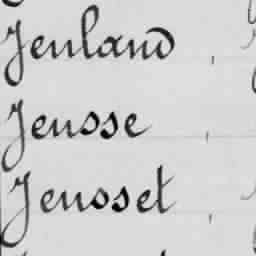 Jenland
Jensse
Jensset